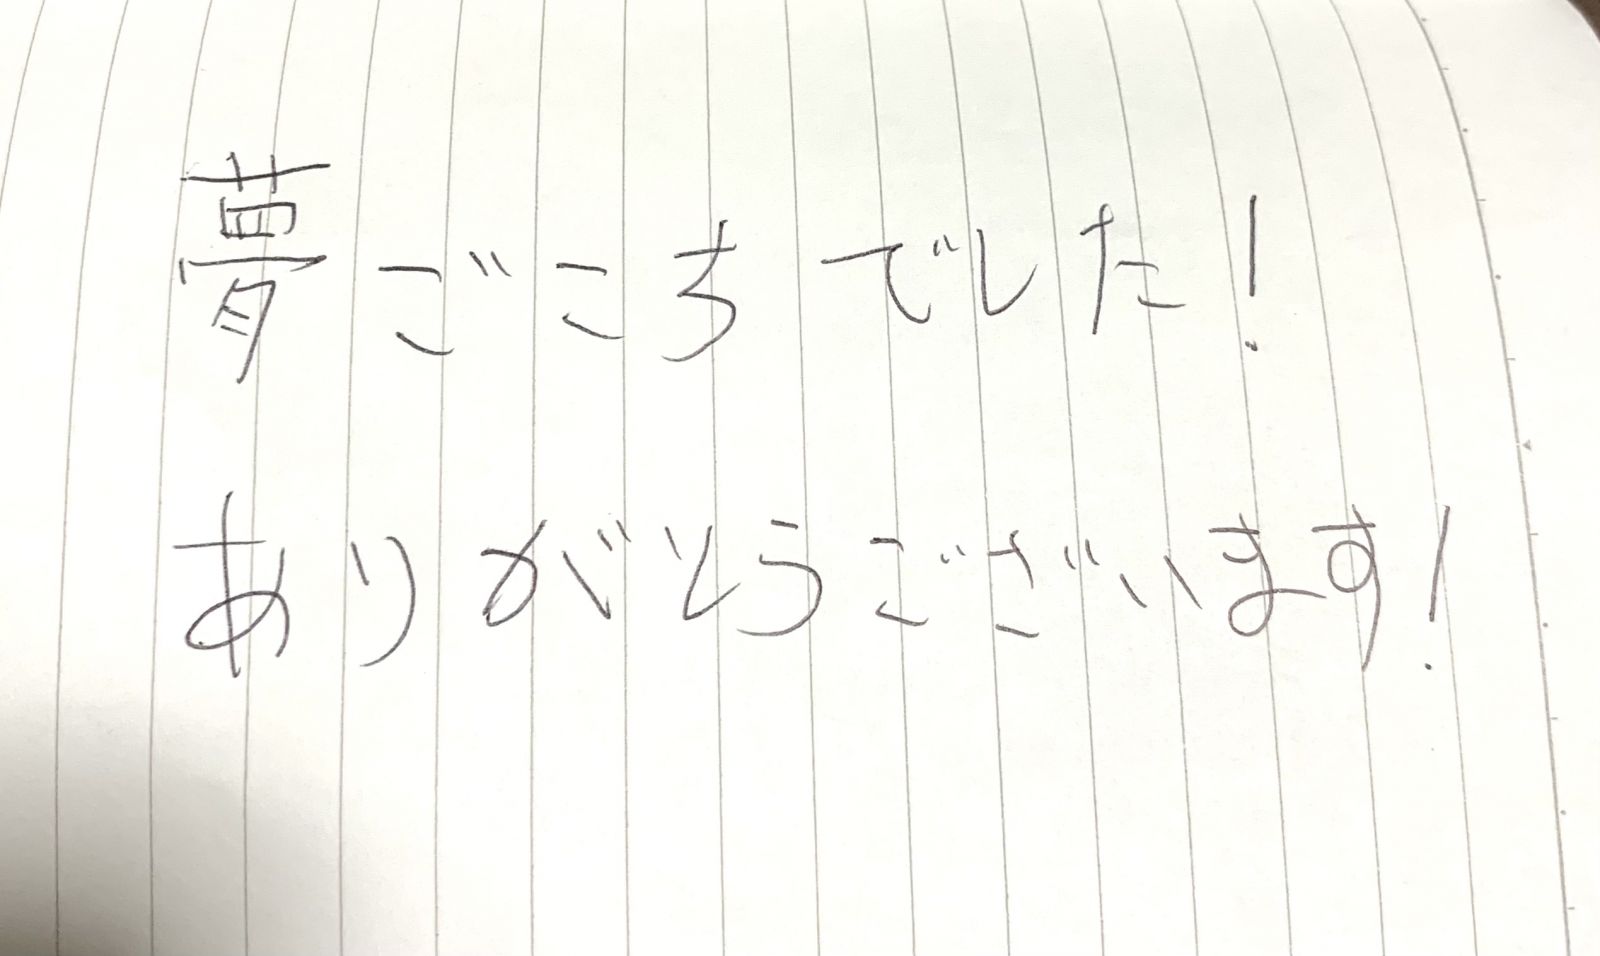 夢ごこちでした!
ありがとうございます!